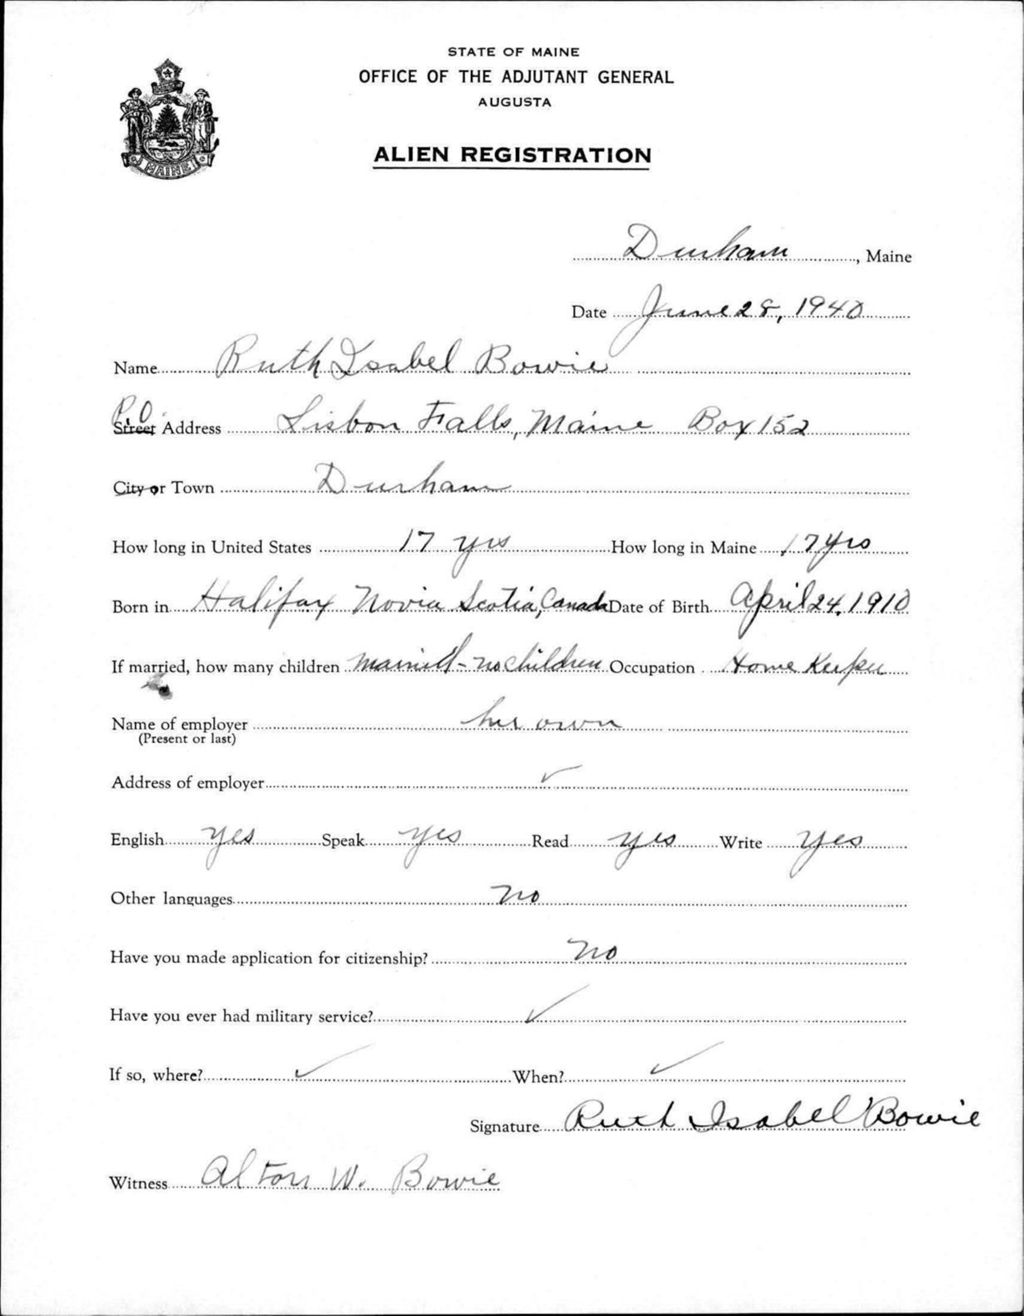 STATE OF MAINE
OFFICE OF THE ADJUTANT GENERAL
AUGUSTA
ALIEN REGISTRATION
MAINE
Durham, Maine
Date June 28, 1940
Name Ruth Isabel Bowie
P.O. Street Address Lisbon Falls, Maine Box 152
City or Town Durham
How long in United States 17 yrs How long in Maine 17 yrs
Born in Halifax Novia Scotia, Canada Date of Birth April 24, 1910
If married, how many children married - no children Occupation Home Keeper
Name of employer her own
(Present or last)
Address of employer ✓
English yes Speak yes Read yes Write yes
Other languages no
Have you made application for citizenship? no
Have you ever had military service? ✓
If so, where? ✓ When? ✓
Signature Ruth Isabel Bowie
Witness Alton W. Bowie